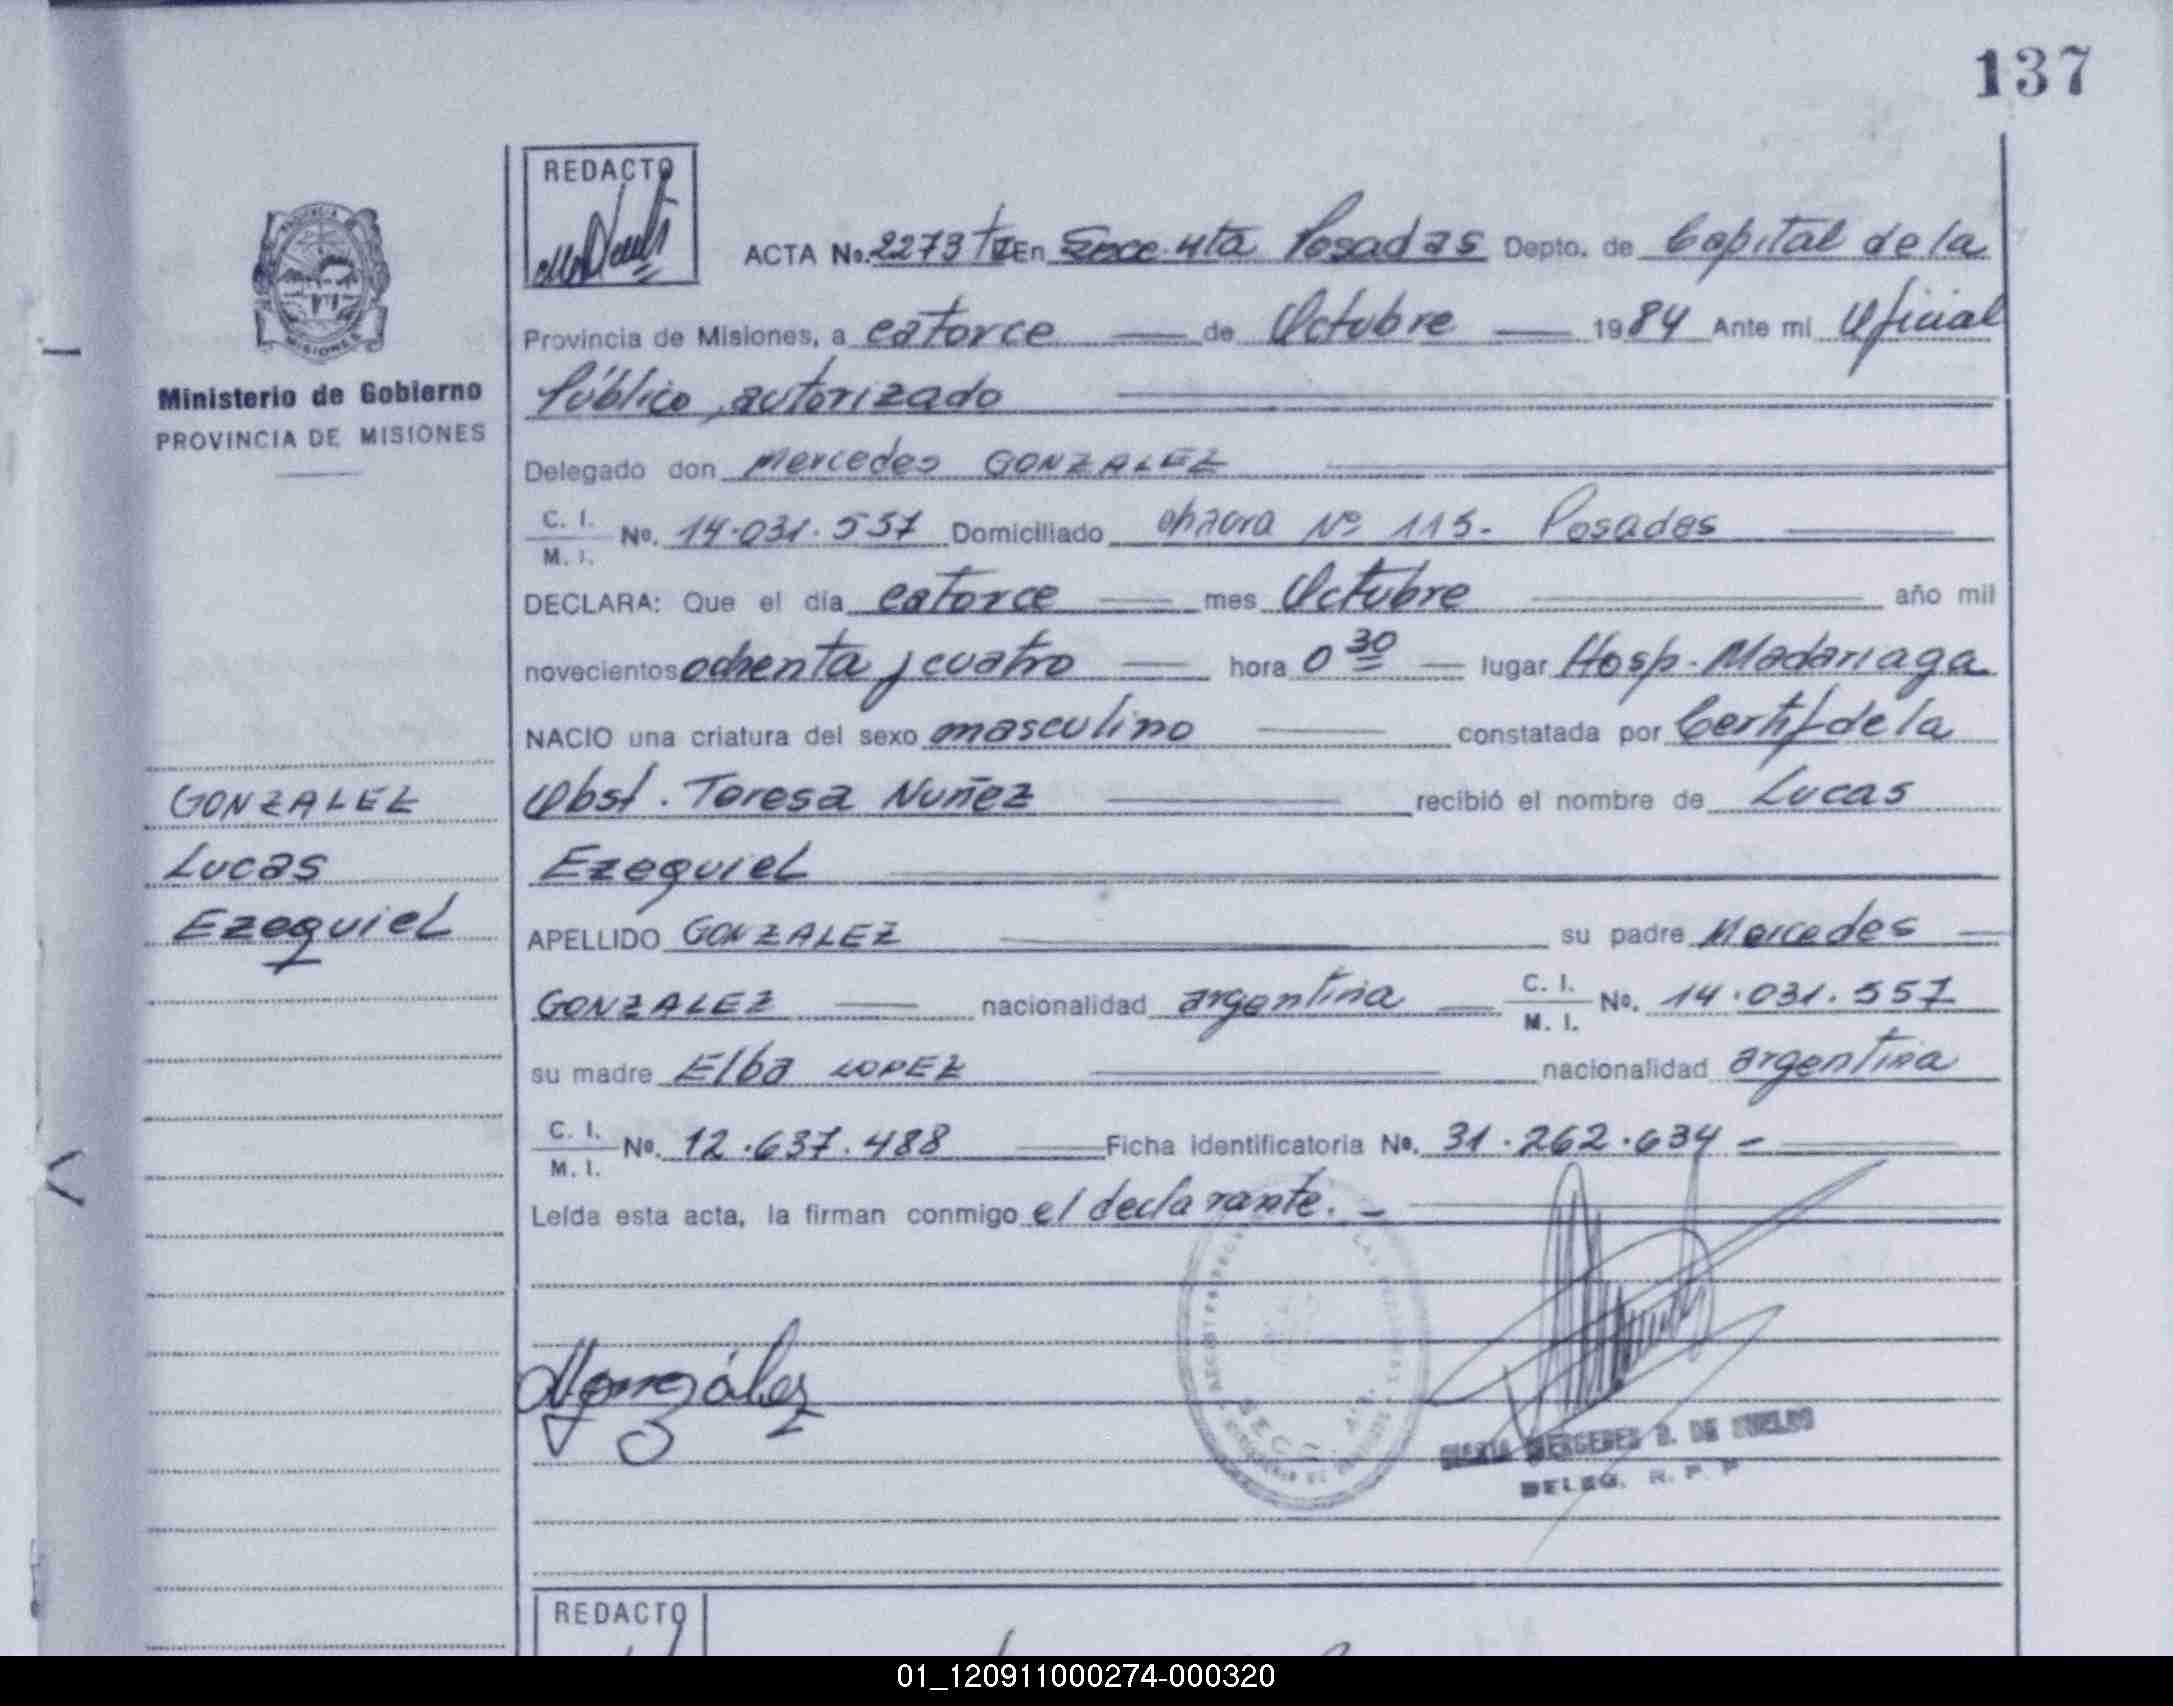 137
REDACTO
ACTA No. 2273 En Secc. 4ta Posadas Depto. de Capital de la
Provincia de Misiones, a catorce — de Octubre — 1984 Ante mi Oficial
Público autorizado
Ministerio de Gobierno
PROVINCIA DE MISIONES
Delegado don Mercedes GONZALEZ
C. I. / M. I. No. 14.031.557 Domiciliado chacra Nº 115. Posadas
DECLARA: Que el día catorce — mes Octubre año mil
novecientos ochenta y cuatro — hora 0 30 — lugar Hosp. Madariaga
NACIO una criatura del sexo masculino constatada por Certif de la
Obst. Teresa Nuñez recibió el nombre de Lucas
Ezequiel
GONZALEZ
Lucas
Ezequiel
APELLIDO GONZALEZ su padre Mercedes —
GONZALEZ — nacionalidad argentina — C. I. / M. I. No. 14.031.557
su madre Elba LOPEZ nacionalidad argentina
C. I. / M. I. No. 12.637.488 — Ficha identificatoria No. 31.262.634 -
Leída esta acta, la firman conmigo el declarante. -
MGonzález
SECC. 4ta.
MARIA MERCEDES D. DE
DELEG. R. P. P
REDACTO
01_120911000274-000320